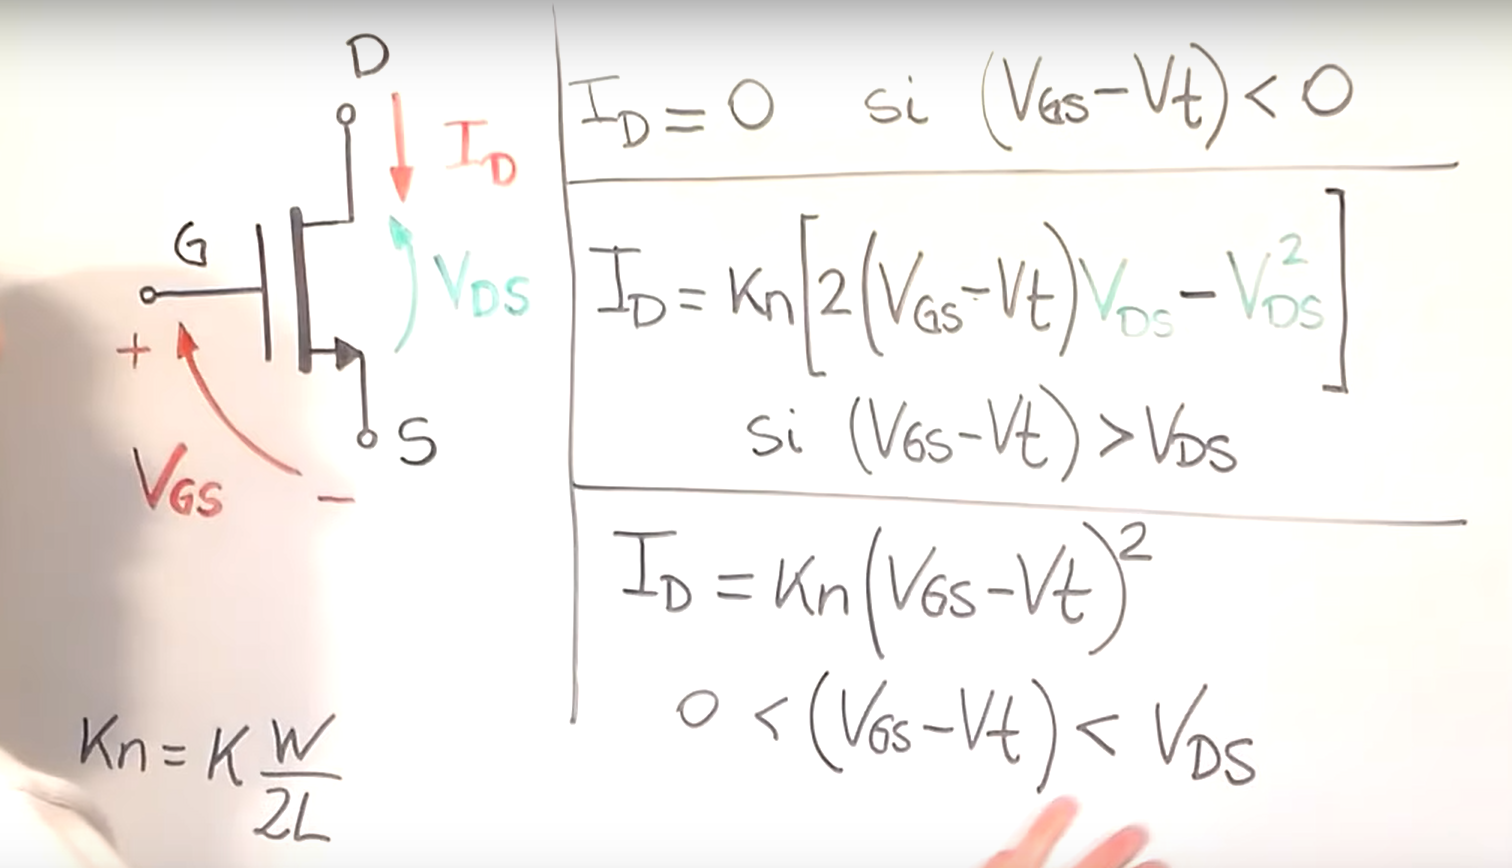 D
I_D
G
V_DS
+
S
V_GS
−
Kn = K W/2L
I_D = 0 si (V_GS − Vt) < 0
I_D = Kn[2(V_GS − Vt)V_DS − V_DS²]
si (V_GS − Vt) > V_DS
I_D = Kn(V_GS − Vt)²
0 < (V_GS − Vt) < V_DS